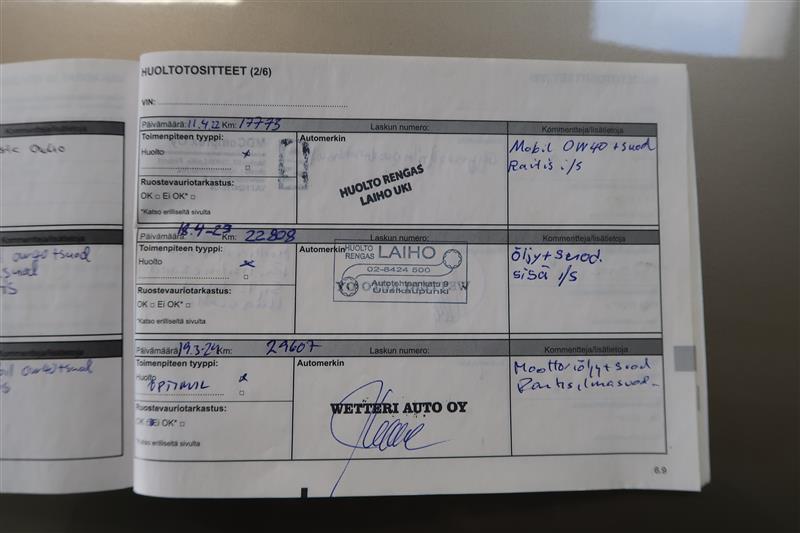 HUOLTOTOSITTEET (2/6)
VIN:
Kommentteja/lisätietoja
Päivämäärä: 11.4.22 Km: 17773 Laskun numero: Kommentteja/lisätietoja
Toimenpiteen tyyppi: Automerkin
Huolto x
Mobil 0W40 + suod
Raitis i/s
HUOLTO RENGAS
LAIHO UKI
Ruostevauriotarkastus:
OK □ Ei OK* □
*Katso erilliseltä sivulta
Kommentteja/lisätietoja
18.4-23 Km: 22808 Laskun numero: Kommentteja/lisätietoja
Toimenpiteen tyyppi: Automerkin
Huolto x
öljy + suod.
sisä i/s
HUOLTO
RENGAS LAIHO
02-8424 500
Autotehtaankatu 9
Uusikaupunki
Ruostevauriotarkastus:
OK □ Ei OK* □
*Katso erilliseltä sivulta
Kommentteja/lisätietoja
Päivämäärä 19.3-24 Km: 29607 Laskun numero: Kommentteja/lisätietoja
Toimenpiteen tyyppi: Automerkin
Huolto x
Moottoriöljy + suod
WETTERI AUTO OY
Ruostevauriotarkastus:
OK Ei OK* □
*Katso erilliseltä sivulta
6.9